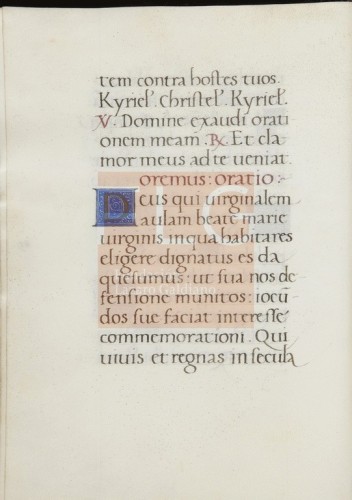 tem contra hostes tuos.
Kyriel'. Christel'. Kyriel'.
V. Domine exaudi orati
onem meam. R. Et cla
mor meus ad te veniat.
oremus: oratio:
Deus qui virginalem
aulam beate marie
virginis in qua habitares
eligere dignatus es da
quesumus: ut sua nos de
fensione munitos: iocū
dos sue faciat interesse
commemorationi. Qui
vivis et regnas in secula